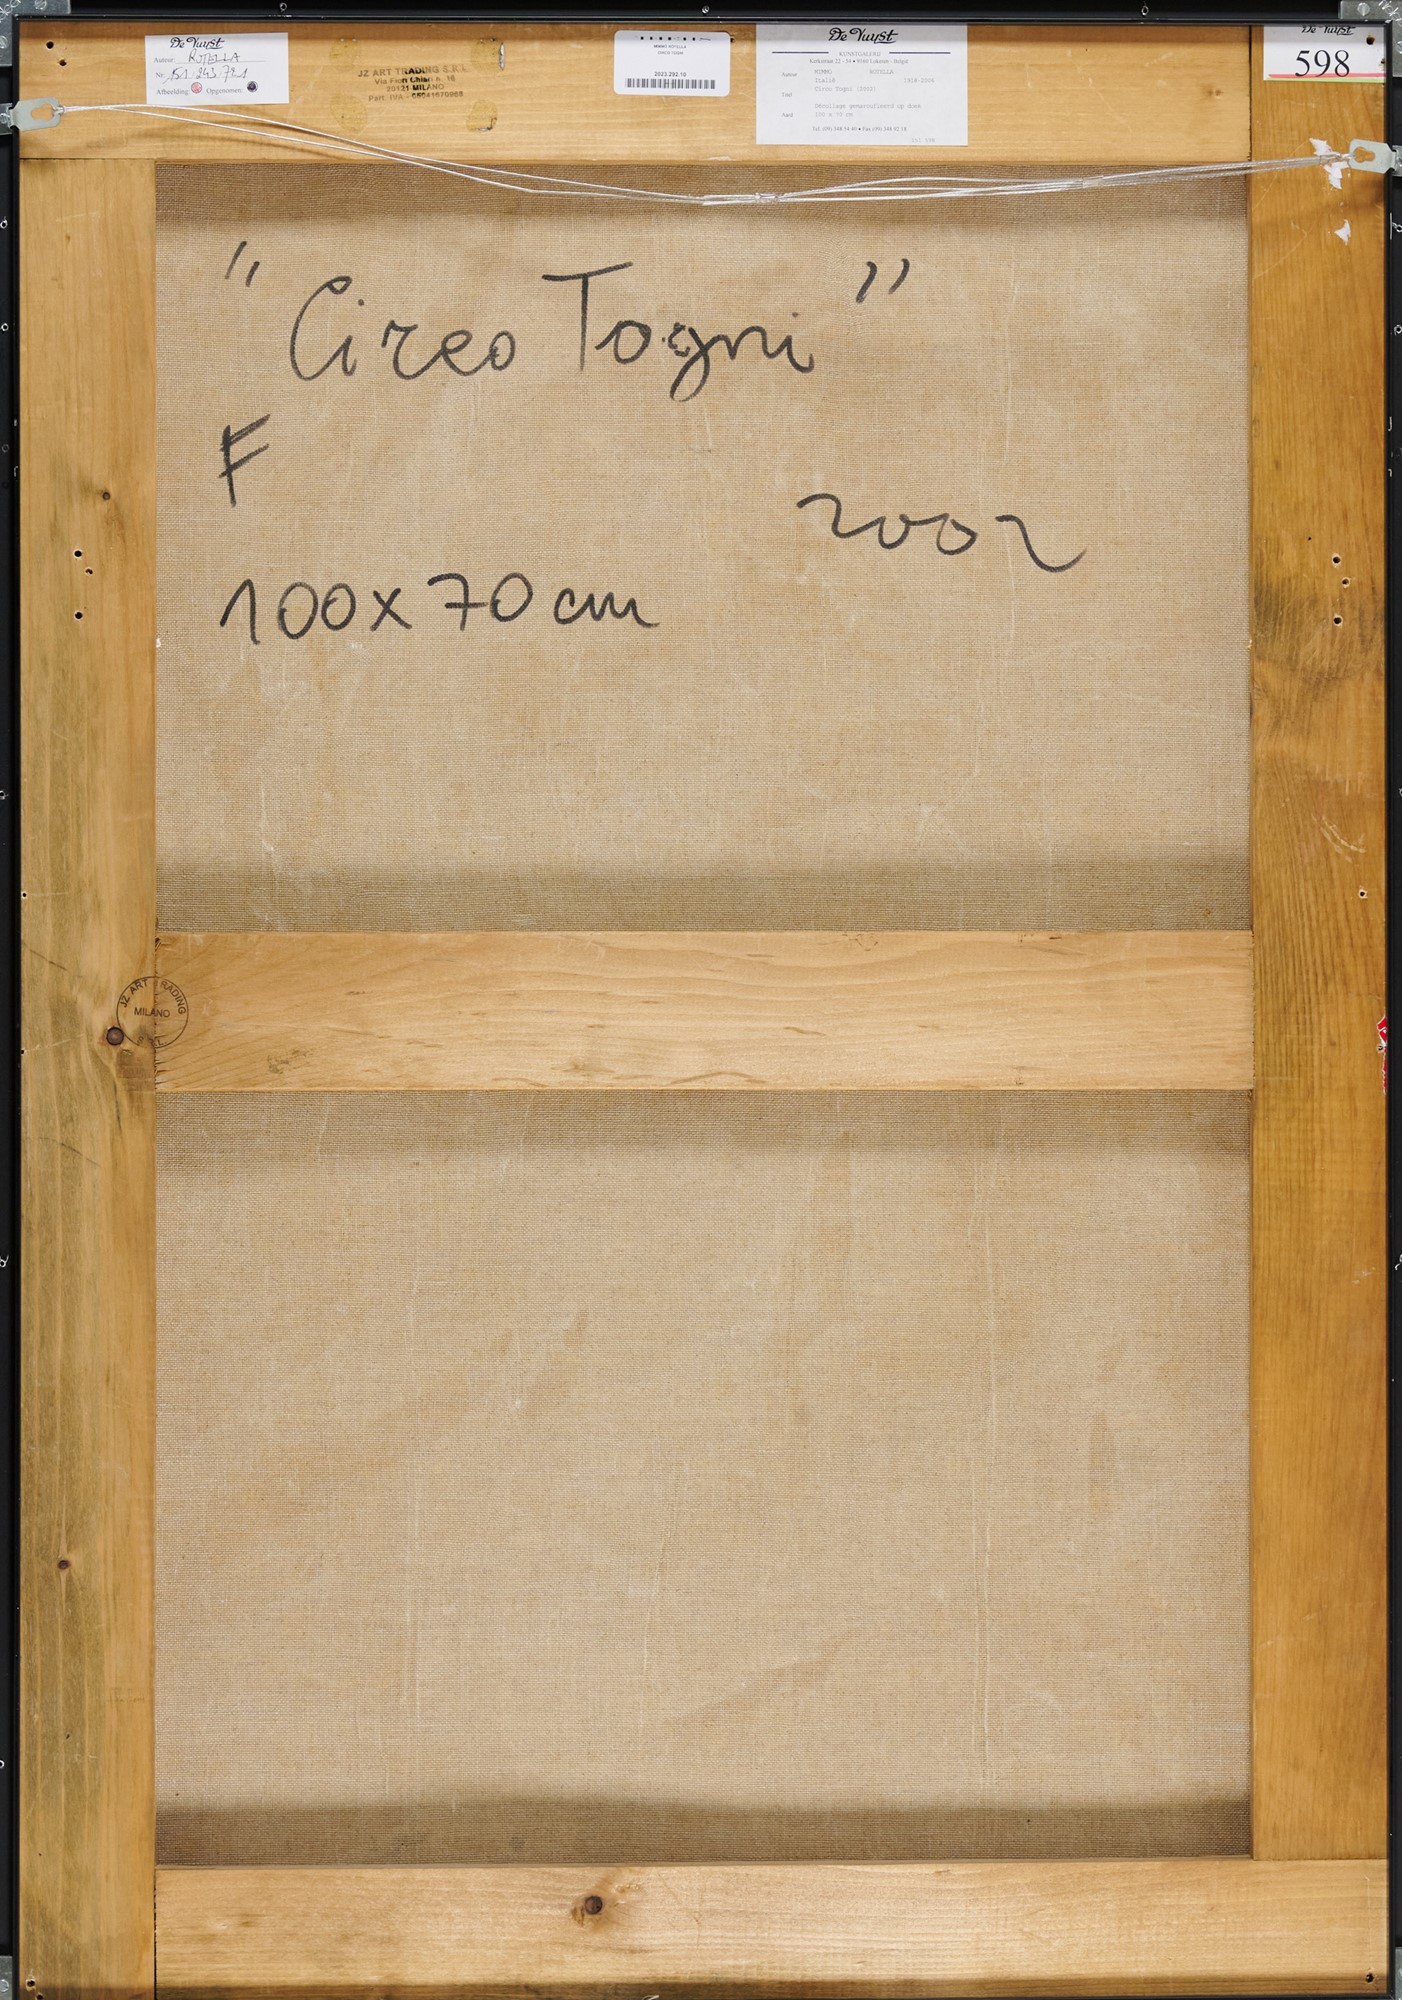 De Vuyst
Auteur: ROTELLA
Nr: 151.243.721
Afbeelding Opgenomen
JZ ART TRADING S.R.L.
Via Fiori Chiari n. 16
20121 MILANO
Part. IVA
MIMMO ROTELLA
CIRCO TOGNI
2023.292.10
De Vuyst
KUNSTGALERIE
Kerkstraat 22 - 54 • 9160 Lokeren - België
Auteur MIMMO ROTELLA
Italië 1918-2006
Titel Circo Togni (2002)
Décollage gemaroufleerd op doek
Aard 100 x 70 cm
Tel. (09) 348 54 40 • Fax (09) 348 92 18
151 598
De Vuyst
598
"Circo Togni"
F
2002
100x70 cm
JZ ART TRADING
MILANO
S.R.L.